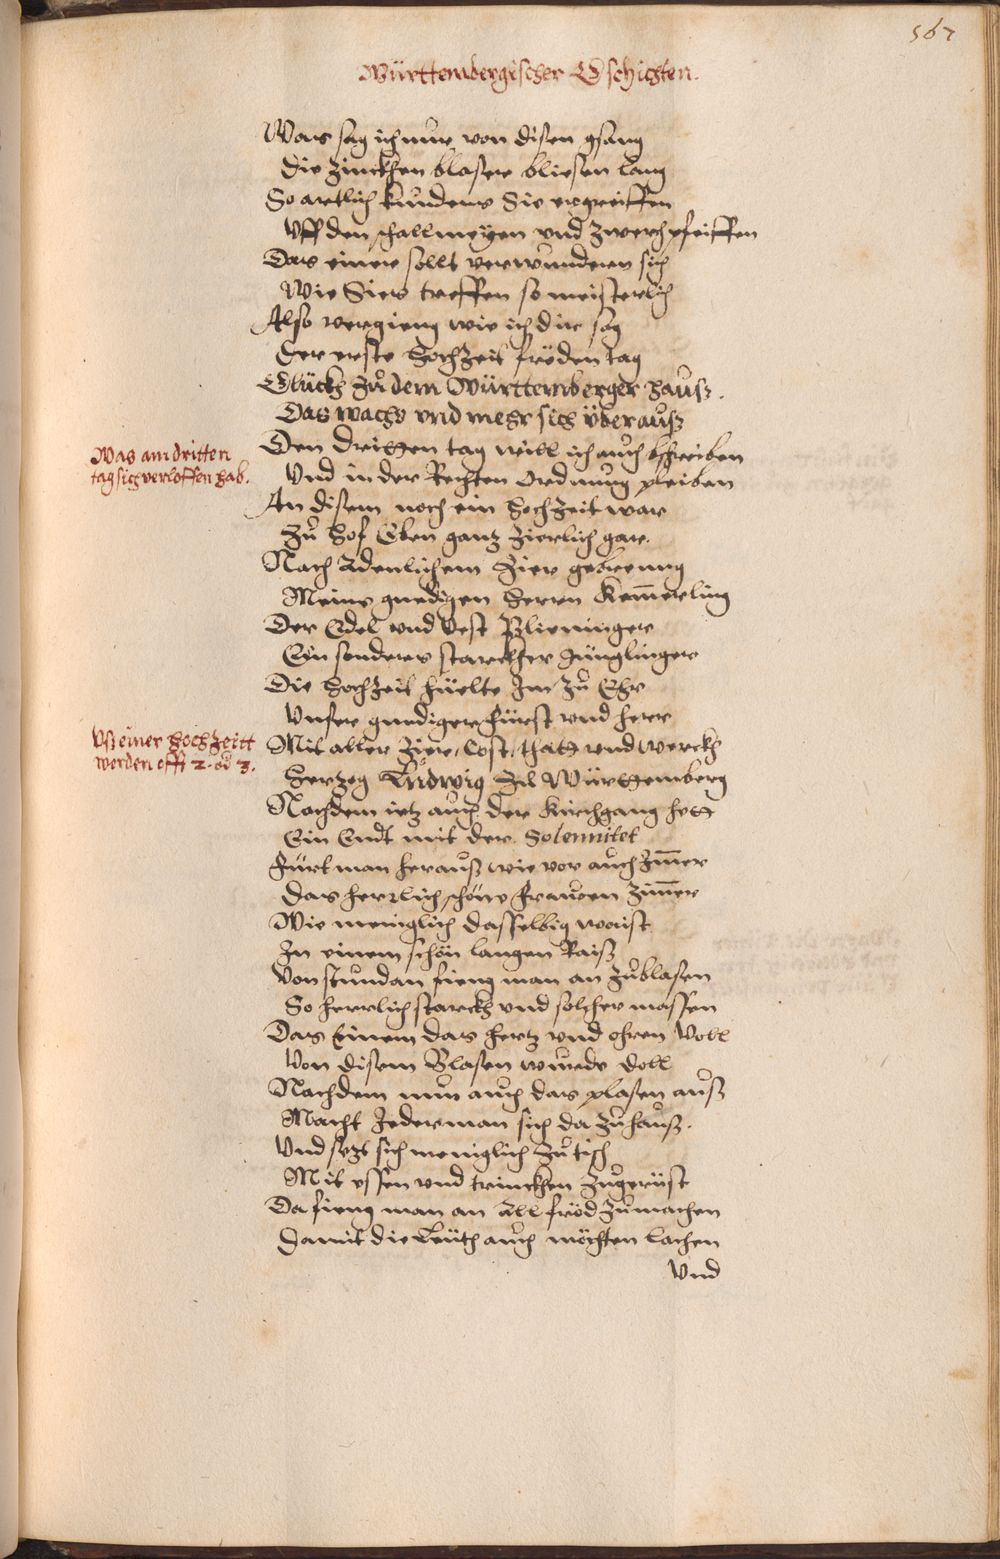 567
Württembergischer Gschichten.
Was sag ich nur von disen gsang
Die Zinckhen blaser bliesen lang
So artlich kundens Sie ergreiffen
Uff den schallmeyen vnd Zwerchpfeiffen
Das einer sollt verwunderen sich
Wie Siers treffen so meisterlich
Also vergieng wie ich dir sag
Der erste Hochzeit fröden tag
Glückh zů dem Württemberger hauß.
Das wachs vnd mehr sich überauß
Was am dritten
tag sich verloffen hab.
Den dritten tag will ich auch bschreiben
Vnd in der Rechten Ordnung pleiben
An disem noch ein Hochzeit war
Zů Hof Eben gantz Zierlich gar.
Nach Adenlichem Zier gebreung
Meins gnedigen Herrn Kem̄erling
Der Edel vnd Vest Plieninger
Ein sonders starckher Jünglinger
Die Hochzeit hüelte Im zů Ehr
Unser gnediger Fürst vnd Herr
Vß einer Hochzeitt
werden offt 2. od 3.
Mit aller Zier, Cost, thatt vnd werckh
Hertzog Ludwig Zů Württemberg
Nachdem ietz auch der Kirchgang hett
Ein Endt mit der Solennitet
Fürt man herauß wie vor auch Im̄er
Das herrlich schöne Frauen Zim̄er
Wie meniglich dasselbig waist
In einem schön langen Raiß
Von stundan fieng man an zůblasen
So herrlich starckh vnd solcher massen
Das Einem das hertz vnd ohren Voll
Von disem Blasen wurde doll
Nachdem nun auch das plasen auß
Macht Jederman sich da zů hauß.
Vnd setzt sich meniglich zů tisch
Mit essen vnd trinckhen zůgerüst
Da fieng man an All fröd zůmachen
Damit die Leüth auch möchten lachen
Vnd